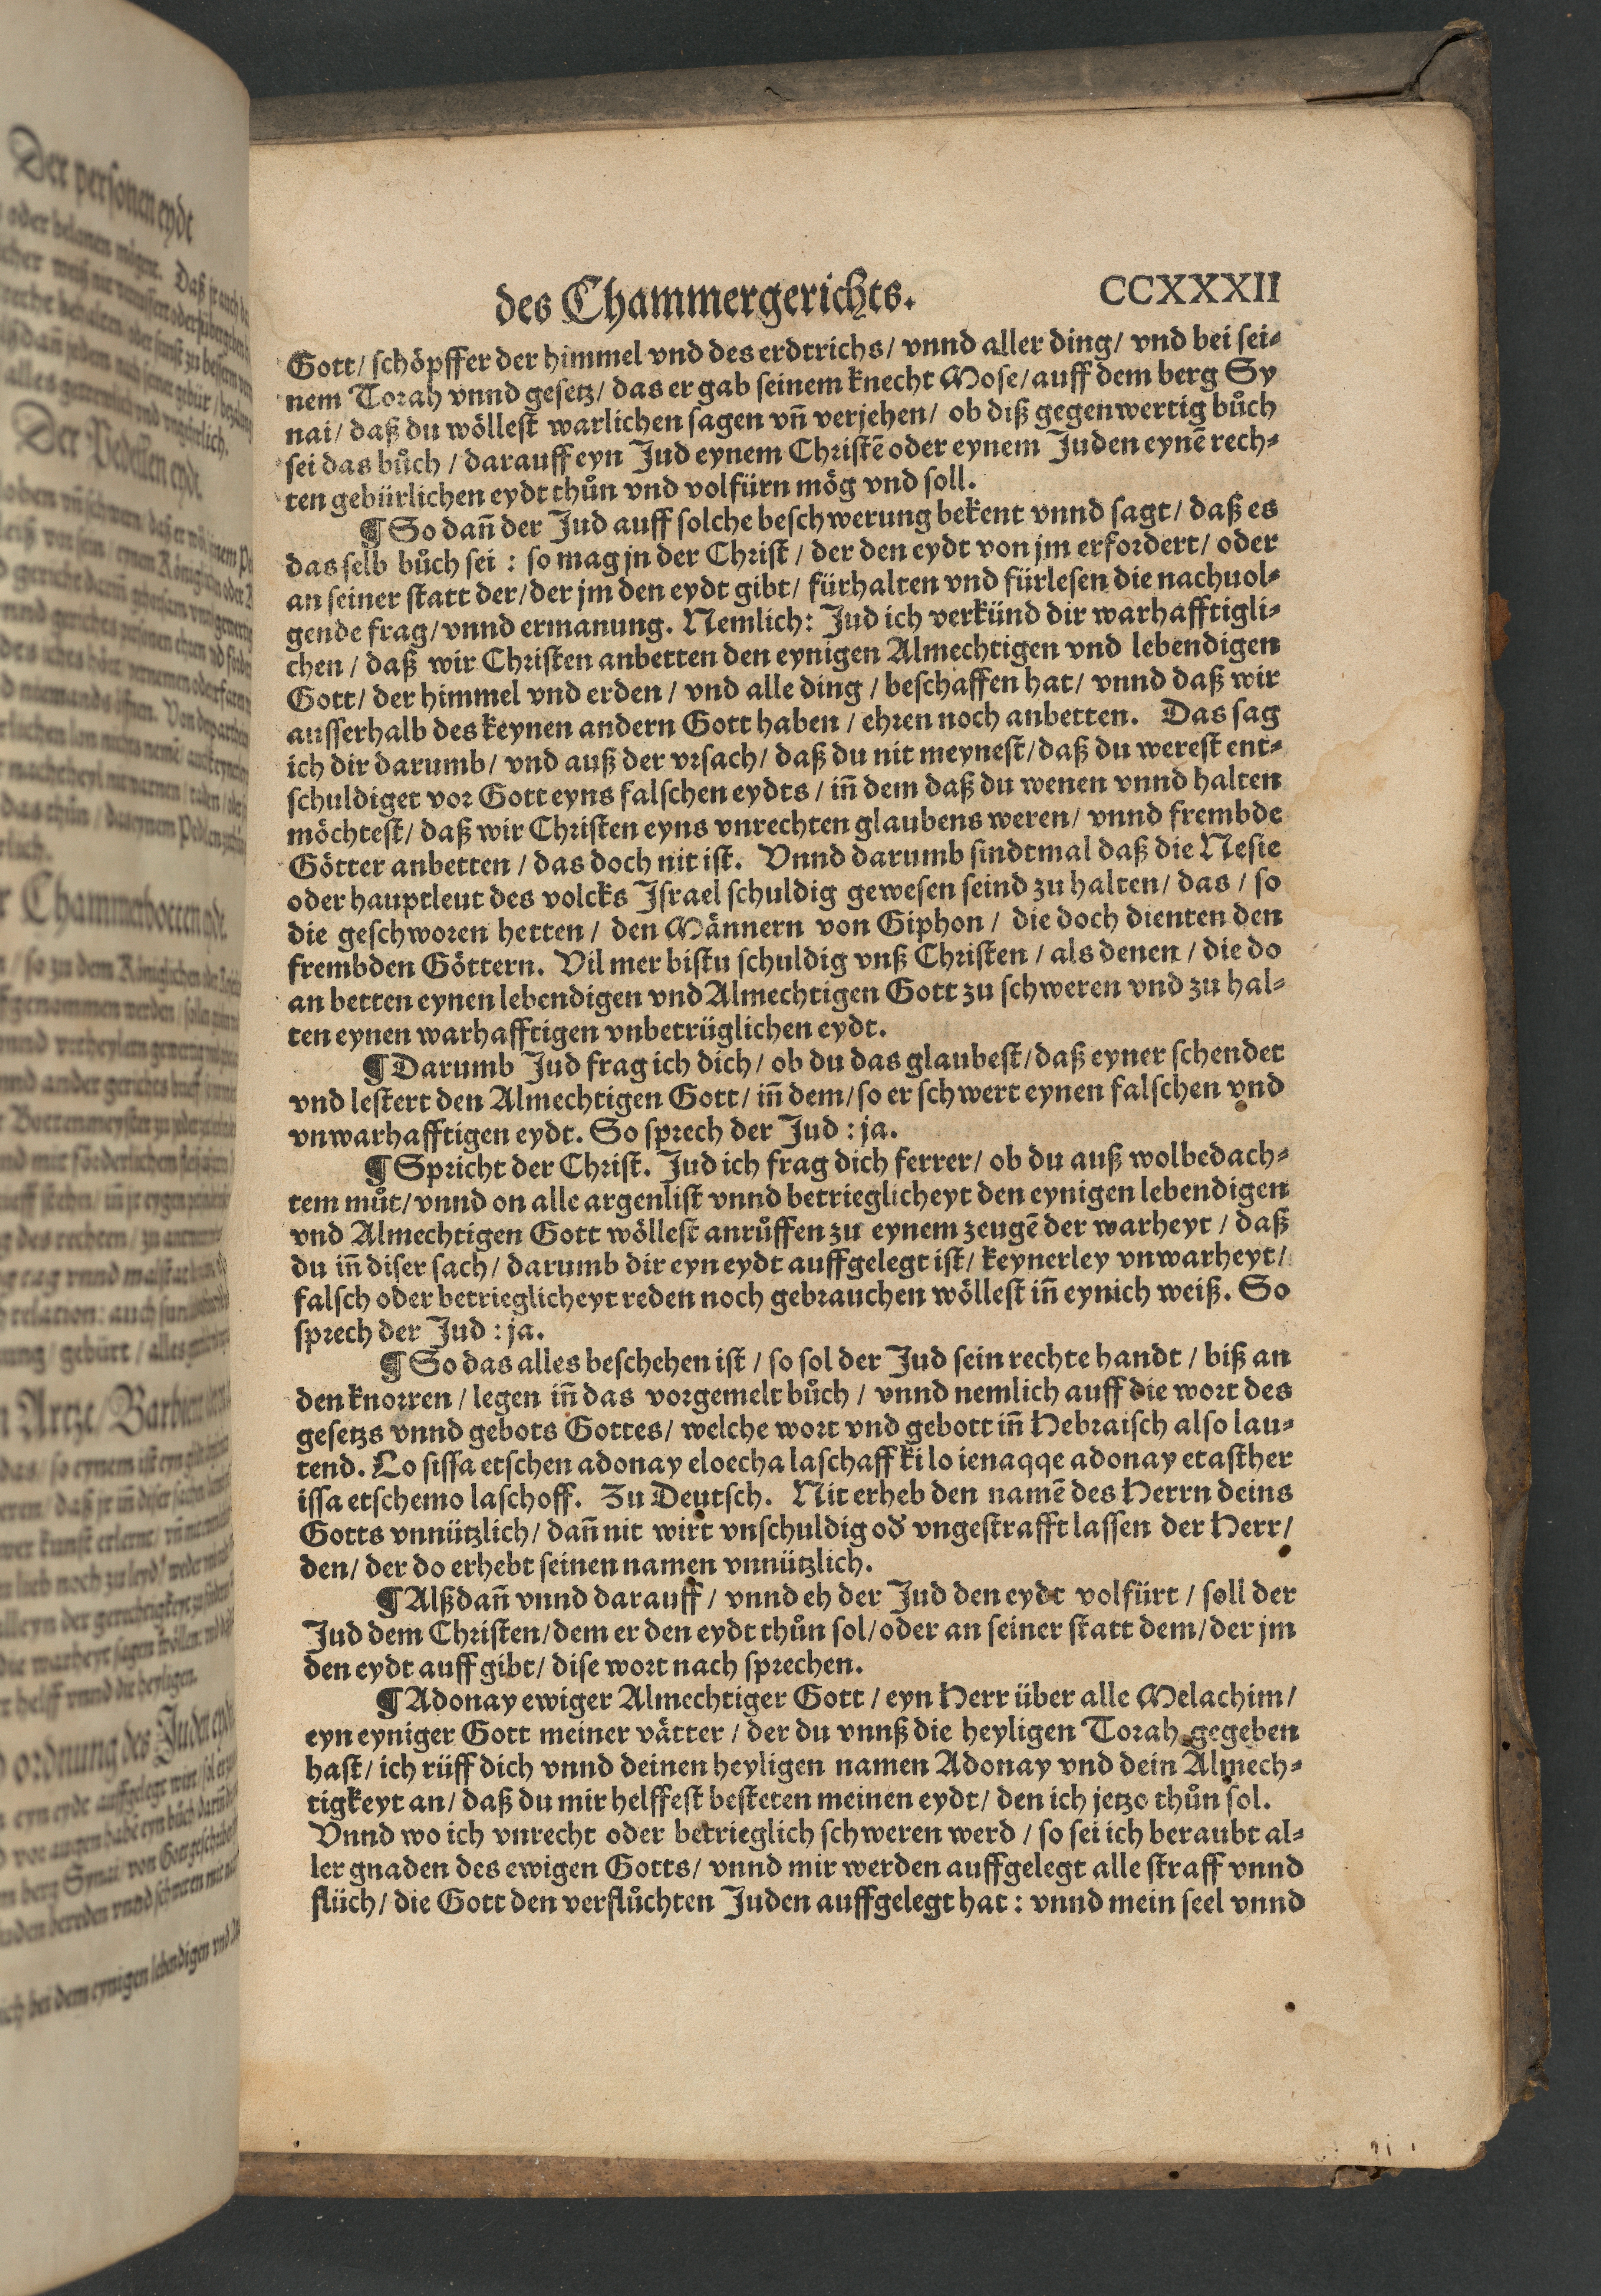 Der personen eydt
Der Pedellen eydt
Chammerbotten eydt.
Artze/ Barbierer
ordnung des Juden eydt
des Chammergerichts. CCXXXII
Gott/ schöpffer der himmel vnd des erdtrichs/ vnnd aller ding/ vnd bei sei⸗
nem Torah vnnd gesetz/ das er gab seinem knecht Mose/ auff dem berg Sy
nai/ daß du wöllest warlichen sagen vn̄ verjehen/ ob diß gegenwertig bůch
sei das bůch / darauff eyn Jud eynem Christē oder eynem Juden eynē rech⸗
ten gebürlichen eydt thůn vnd volfürn mög vnd soll.
¶ So dan̄ der Jud auff solche beschwerung bekent vnnd sagt/ daß es
das selb bůch sei : so mag jn der Christ / der den eydt von jm erfordert/ oder
an seiner statt der/ der jm den eydt gibt/ fürhalten vnd fürlesen die nachuol⸗
gende frag/ vnnd ermanung. Nemlich: Jud ich verkünd dir warhafftigli⸗
chen / daß wir Christen anbetten den eynigen Almechtigen vnd lebendigen
Gott/ der himmel vnd erden / vnd alle ding / beschaffen hat/ vnnd daß wir
ausserhalb des keynen andern Gott haben / ehren noch anbetten. Das sag
ich dir darumb/ vnd auß der vrsach/ daß du nit meynest/ daß du werest ent⸗
schuldiget vor Gott eyns falschen eydts / in̄ dem daß du wenen vnnd halten
möchtest/ daß wir Christen eyns vnrechten glaubens weren/ vnnd frembde
Götter anbetten / das doch nit ist. Vnnd darumb sindtmal daß die Nesie
oder hauptleut des volcks Israel schuldig gewesen seind zu halten/ das / so
die geschworen hetten / den Männern von Giphon / die doch dienten den
frembden Göttern. Vil mer bistu schuldig vnß Christen / als denen / die do
an betten eynen lebendigen vnd Almechtigen Gott zu schweren vnd zu hal⸗
ten eynen warhafftigen vnbetrüglichen eydt.
¶ Darumb Jud frag ich dich / ob du das glaubest/ daß eyner schendet
vnd lestert den Almechtigen Gott/ in̄ dem/ so er schwert eynen falschen vnd
vnwarhafftigen eydt. So sprech der Jud : ja.
¶ Spricht der Christ. Jud ich frag dich ferrer/ ob du auß wolbedach⸗
tem můt/ vnnd on alle argenlist vnnd betrieglicheyt den eynigen lebendigen
vnd Almechtigen Gott wöllest anrůffen zu eynem zeugē der warheyt / daß
du in̄ diser sach/ darumb dir eyn eydt auffgelegt ist/ keynerley vnwarheyt/
falsch oder betrieglicheyt reden noch gebrauchen wöllest in̄ eynich weiß. So
sprech der Jud : ja.
¶ So das alles beschehen ist / so sol der Jud sein rechte handt / biß an
den knorren / legen in̄ das vorgemelt bůch / vnnd nemlich auff die wort des
gesetzs vnnd gebots Gottes/ welche wort vnd gebott in̄ Hebraisch also lau⸗
tend. Lo sissa etschen adonay eloecha laschaff ki lo ienaqqe adonay etasther
issa etschemo laschoff. Zu Deutsch. Nit erheb den namē des Herrn deins
Gotts vnnützlich/ dan̄ nit wirt vnschuldig oď vngestrafft lassen der Herr/
den/ der do erhebt seinen namen vnnützlich.
¶ Alßdan̄ vnnd darauff / vnnd eh der Jud den eydt volfürt / soll der
Jud dem Christen/ dem er den eydt thůn sol/ oder an seiner statt dem/ der jm
den eydt auff gibt/ dise wort nach sprechen.
¶ Adonay ewiger Almechtiger Gott / eyn Herr über alle Melachim/
eyn eyniger Gott meiner vätter / der du vnnß die heyligen Torah gegeben
hast/ ich rüff dich vnnd deinen heyligen namen Adonay vnd dein Almech⸗
tigkeyt an/ daß du mir helffest besteten meinen eydt/ den ich jetzo thůn sol.
Vnnd wo ich vnrecht oder betrieglich schweren werd / so sei ich beraubt al⸗
ler gnaden des ewigen Gotts/ vnnd mir werden auffgelegt alle straff vnnd
flüch/ die Gott den verflůchten Juden auffgelegt hat : vnnd mein seel vnnd